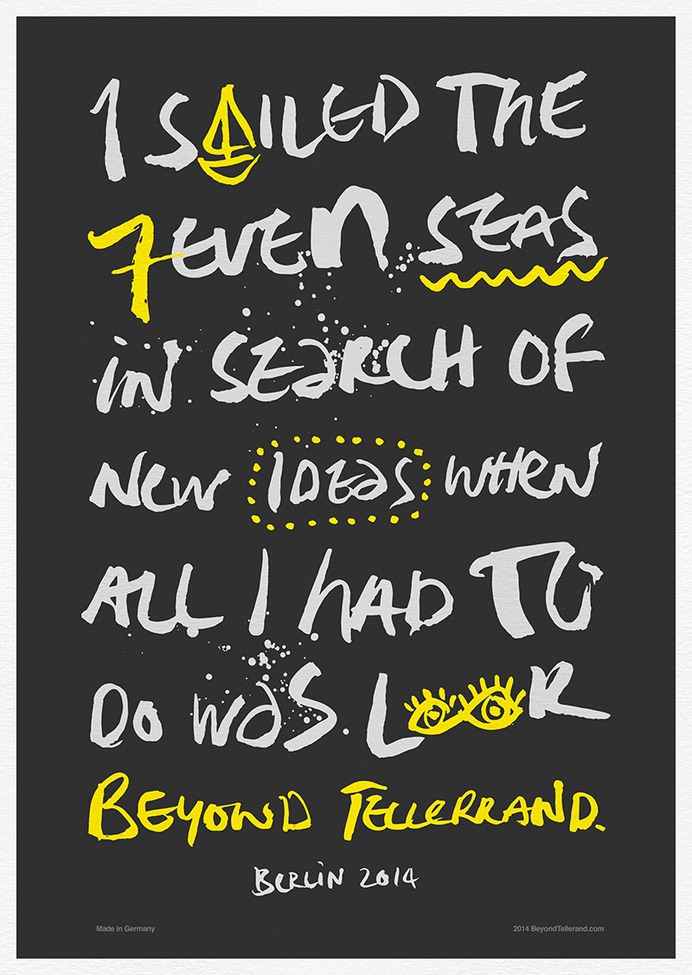 I SAILED THE
7EVEN SEAS
IN SEARCH OF
NEW IDEAS WHEN
ALL I HAD TO
DO WAS. LOOK
BEYOND TELLERRAND.
BERLIN 2014
Made in Germany
2014 BeyondTellerand.com